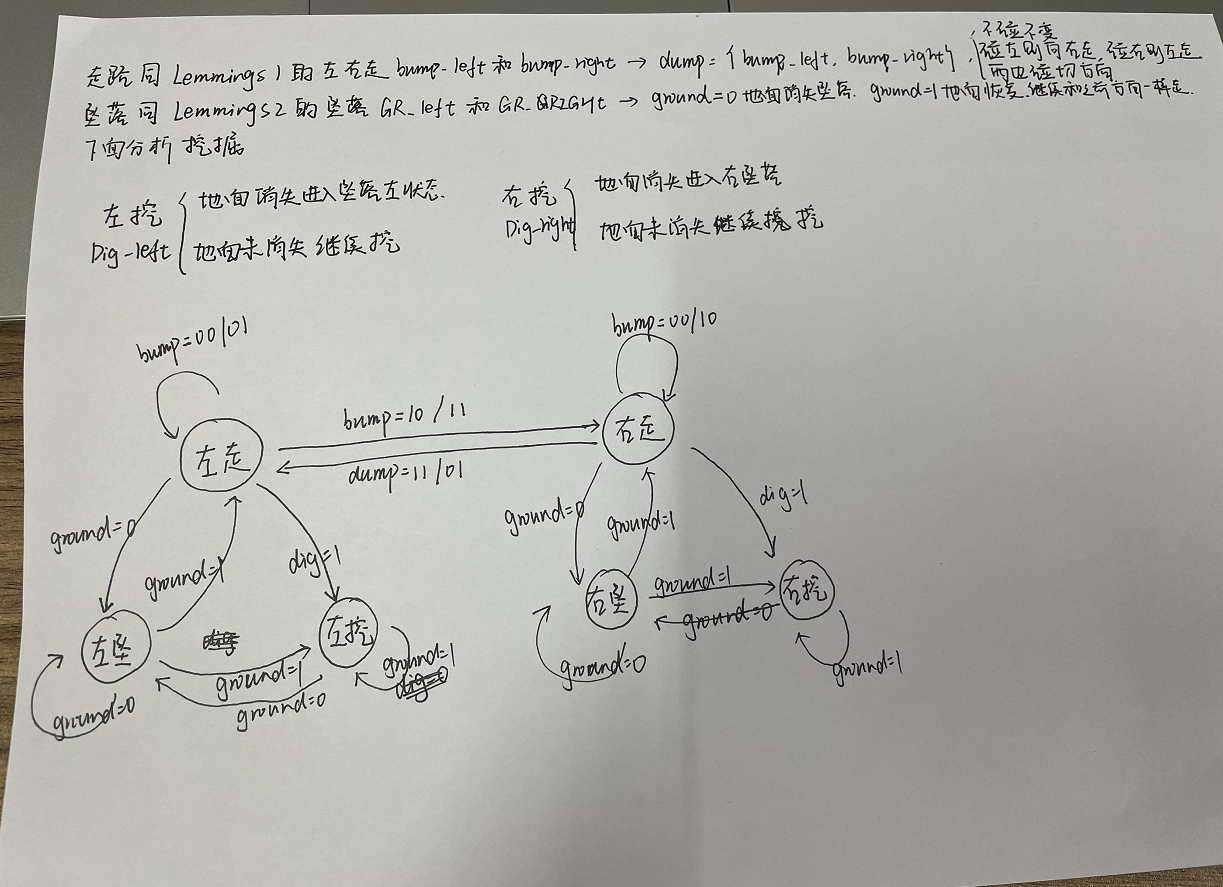 走路同 Lemmings 1 的左右走 bump_left 和 bump_right → dump = {bump_left, bump_right},
不碰不变
碰左则向右走、碰右则左走
两边碰切方向
坠落同 Lemmings 2 的坠落 GR_left 和 GR_RIGHt → ground=0 地面消失坠落. ground=1 地面恢复,继续和之前方向一样走.
下面分析挖掘
左挖
Dig-left
地面消失进入坠落左状态.
地面未消失继续挖
右挖
Dig-right
地面消失进入右坠落
地面未消失继续挖
bump=00/01
bump=00/10
左走
bump=10 / 11
dump=11/01
右走
ground=0
ground=1
dig=1
ground=0
ground=1
dig=1
左坠
左挖
ground=1
ground=0
ground=1
ground=0
右坠
右挖
ground=1
ground=0
ground=0
ground=1